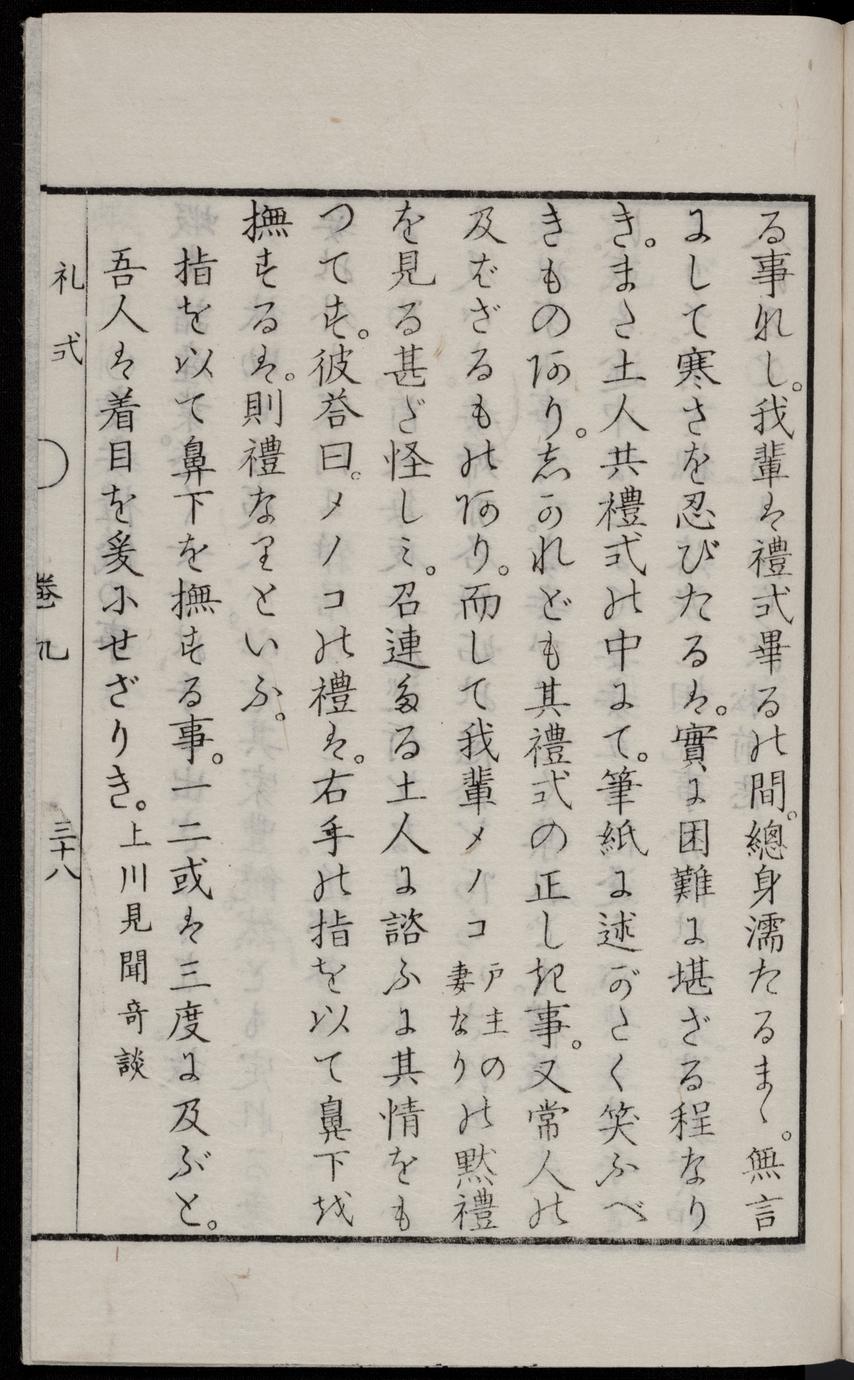 る事なし。我輩は禮式畢るの間。總身濡たるまゝ。無言
にして寒さを忍びたるは。實に困難に堪ざる程なり
き。また土人共禮式の中にて。筆紙に述がたく笑ふべ
きものあり。志かれども其禮式の正しき事。又常人の
及ばざるものあり。而して我輩メノコ戸主の妻なりの黙禮
を見る甚だ怪しミ。召連たる土人に諮ふに其情をも
つてす。彼荅曰。メノコの禮は。右手の指を以て鼻下を
撫するは。則禮なりといふ。
指を以て鼻下を撫する事。一二或は三度に及ぶと。
吾人は着目を爰にせざりき。上川見聞奇談
礼式 巻九 三十八